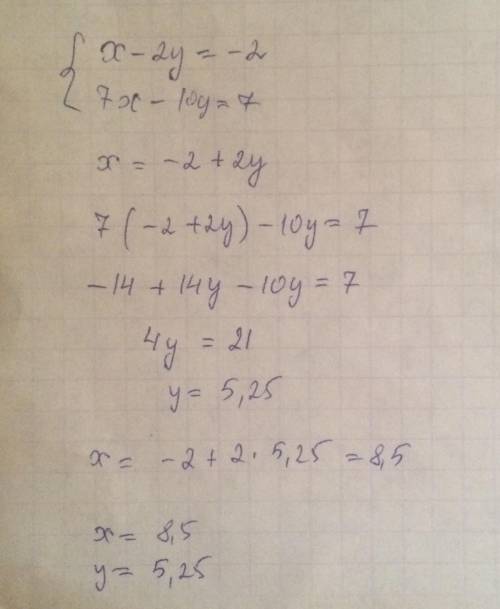 { x - 2y = -2
7x - 10y = 7
x = -2 + 2y
7(-2 + 2y) - 10y = 7
-14 + 14y - 10y = 7
4y = 21
y = 5,25
x = -2 + 2 · 5,25 = 8,5
x = 8,5
y = 5,25